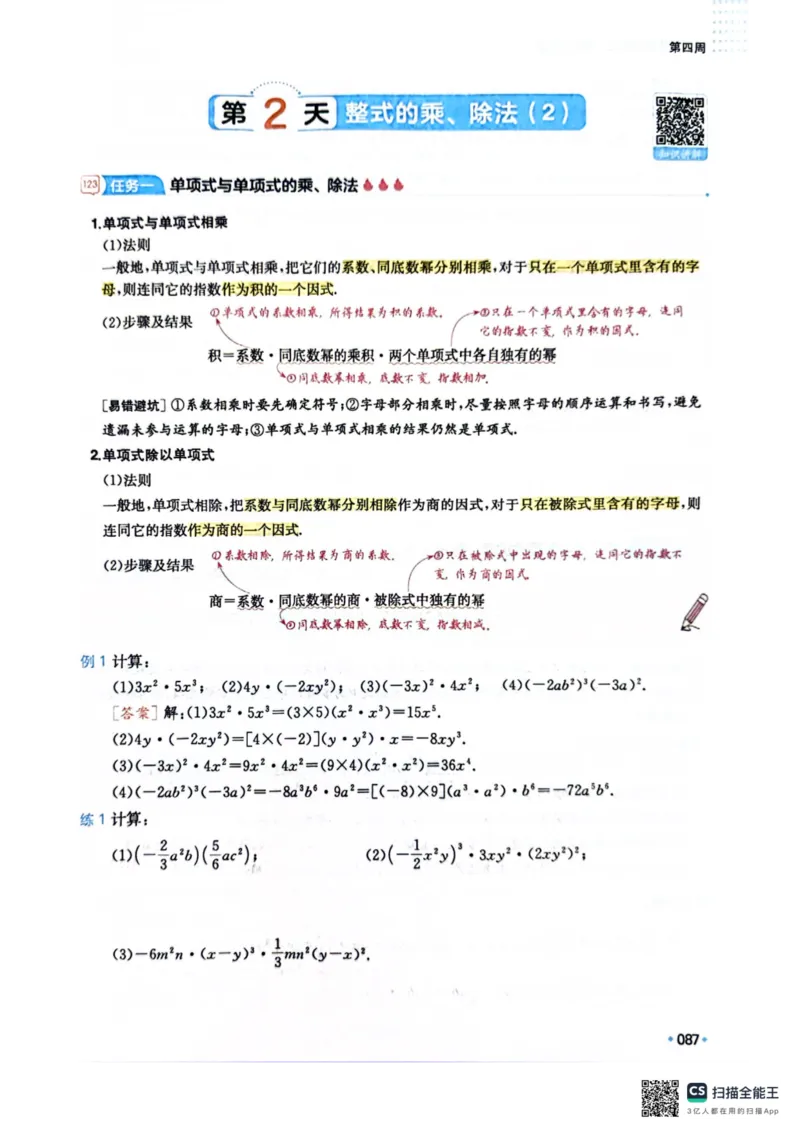 第四周
第2天 整式的乘、除法（2）
知识讲解
123 任务一 单项式与单项式的乘、除法
1.单项式与单项式相乘
(1)法则
一般地,单项式与单项式相乘,把它们的系数、同底数幂分别相乘,对于只在一个单项式里含有的字
母,则连同它的指数作为积的一个因式.
①单项式的系数相乘，所得结果为积的系数.
③只在一个单项式里含有的字母，连同
(2)步骤及结果
它的指数不变，作为积的因式.
积=系数·同底数幂的乘积·两个单项式中各自独有的幂
②同底数幂相乘，底数不变，指数相加.
[易错避坑]①系数相乘时要先确定符号;②字母部分相乘时,尽量按照字母的顺序运算和书写,避免
遗漏未参与运算的字母;③单项式与单项式相乘的结果仍然是单项式.
2.单项式除以单项式
(1)法则
一般地,单项式相除,把系数与同底数幂分别相除作为商的因式,对于只在被除式里含有的字母,则
连同它的指数作为商的一个因式.
①系数相除，所得结果为商的系数.
③只在被除式中出现的字母，连同它的指数不
(2)步骤及结果
变，作为商的因式
商=系数·同底数幂的商·被除式中独有的幂
②同底数幂相除，底数不变，指数相减.
例1 计算:
(1)3x²·5x³; (2)4y·(-2xy²); (3)(-3x)²·4x²; (4)(-2ab²)³(-3a)².
[答案]解:(1)3x²·5x³=(3×5)(x²·x³)=15x⁵.
(2)4y·(-2xy²)=[4×(-2)](y·y²)·x=-8xy³.
(3)(-3x)²·4x²=9x²·4x²=(9×4)(x²·x²)=36x⁴.
(4)(-2ab²)³(-3a)²=-8a³b⁶·9a²=[(-8)×9](a³·a²)·b⁶=-72a⁵b⁶.
练1 计算:
(1)(-2/3a²b)(5/6ac²); (2)(-1/2x²y)³·3xy²·(2xy²)²;
(3)-6m²n·(x-y)³·1/3mn²(y-x)².
087
CS 扫描全能王
3亿人都在用的扫描App